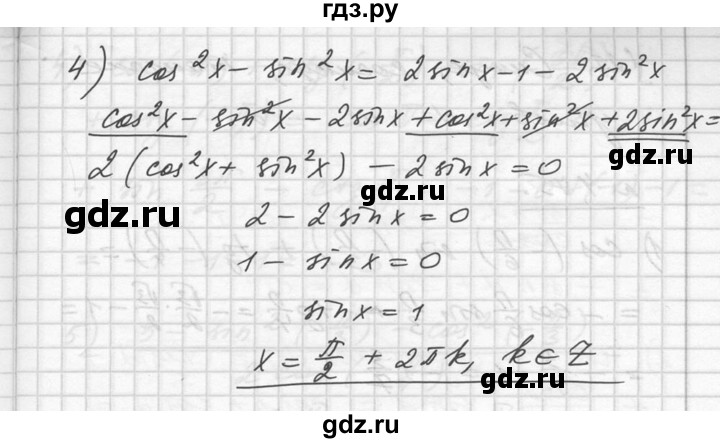 гдз.ру
4) cos²x - sin²x = 2sinx - 1 - 2sin²x
cos²x - sin²x - 2sinx + cos²x + sin²x + 2sin²x =
2(cos²x + sin²x) - 2sinx = 0
gdz.ru
gdz.ru
2 - 2sinx = 0
1 - sinx = 0
sinx = 1
x = π/2 + 2πk, k ∈ Z
gdz.ru
gdz.ru
gdz.ru